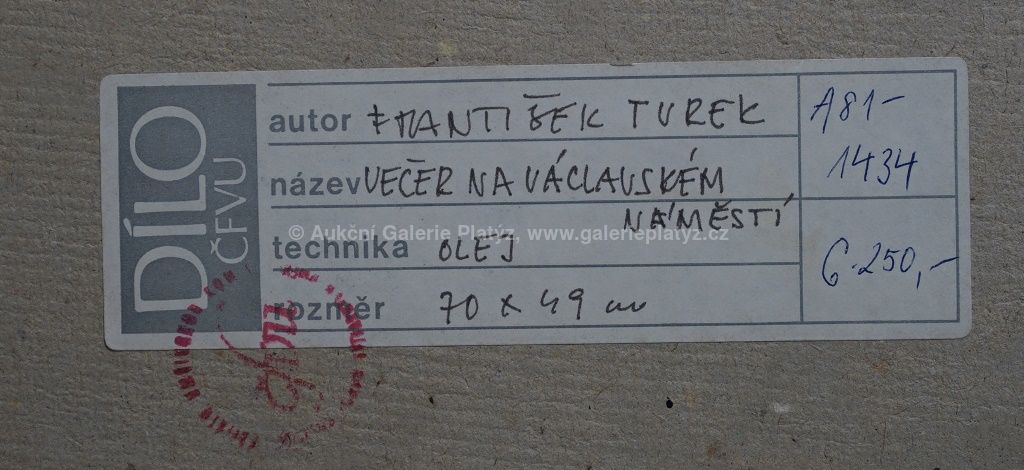 DÍLO
ČFVU
autor FRANTIŠEK TUREK
název VEČER NA VÁCLAVSKÉM
NÁMĚSTÍ
technika OLEJ
rozměr 70 x 49 cm
A81-
1434
6.250,-
© Aukční Galerie Platýz, www.galerieplatyz.cz